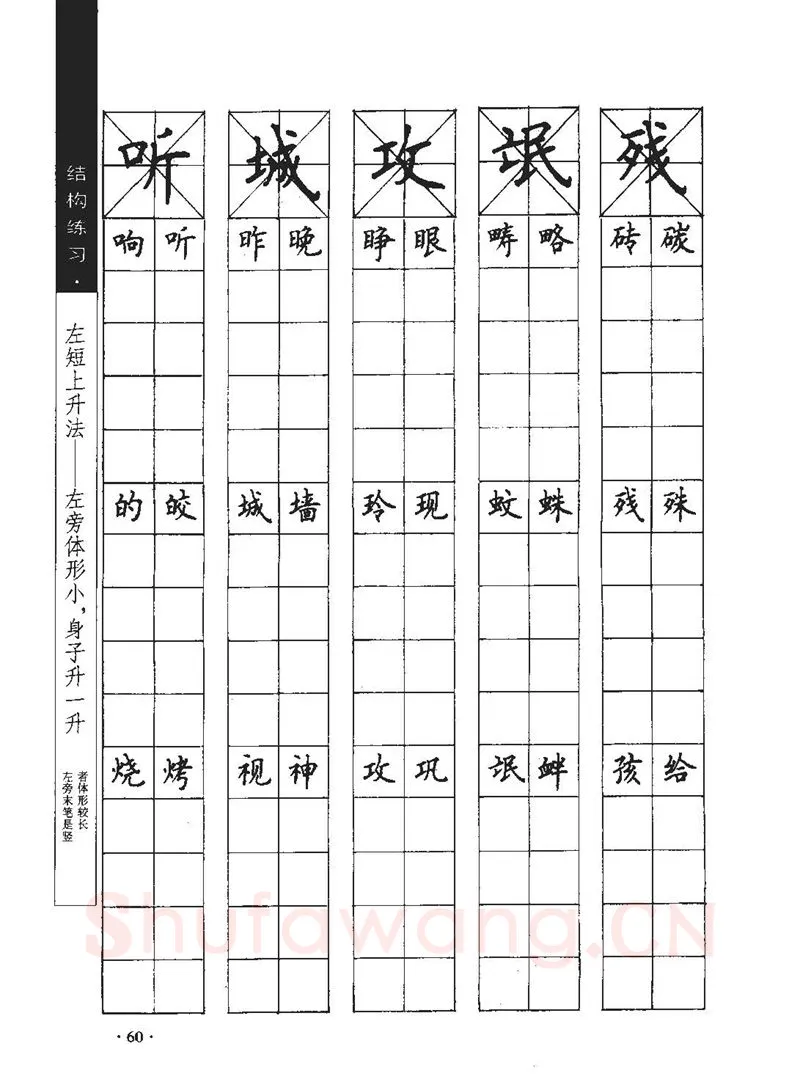 结构练习·
左短上升法——左旁体形小，身子升一升
左旁末笔是竖
者体形较长
听 城 攻 氓 残
响 听 昨 晚 睁 眼 畴 略 砖 碳
的 皎 城 墙 玲 现 蚊 蛛 残 殊
烧 烤 视 神 攻 巩 氓 衅 孩 给
Shufawang.CN
·60·